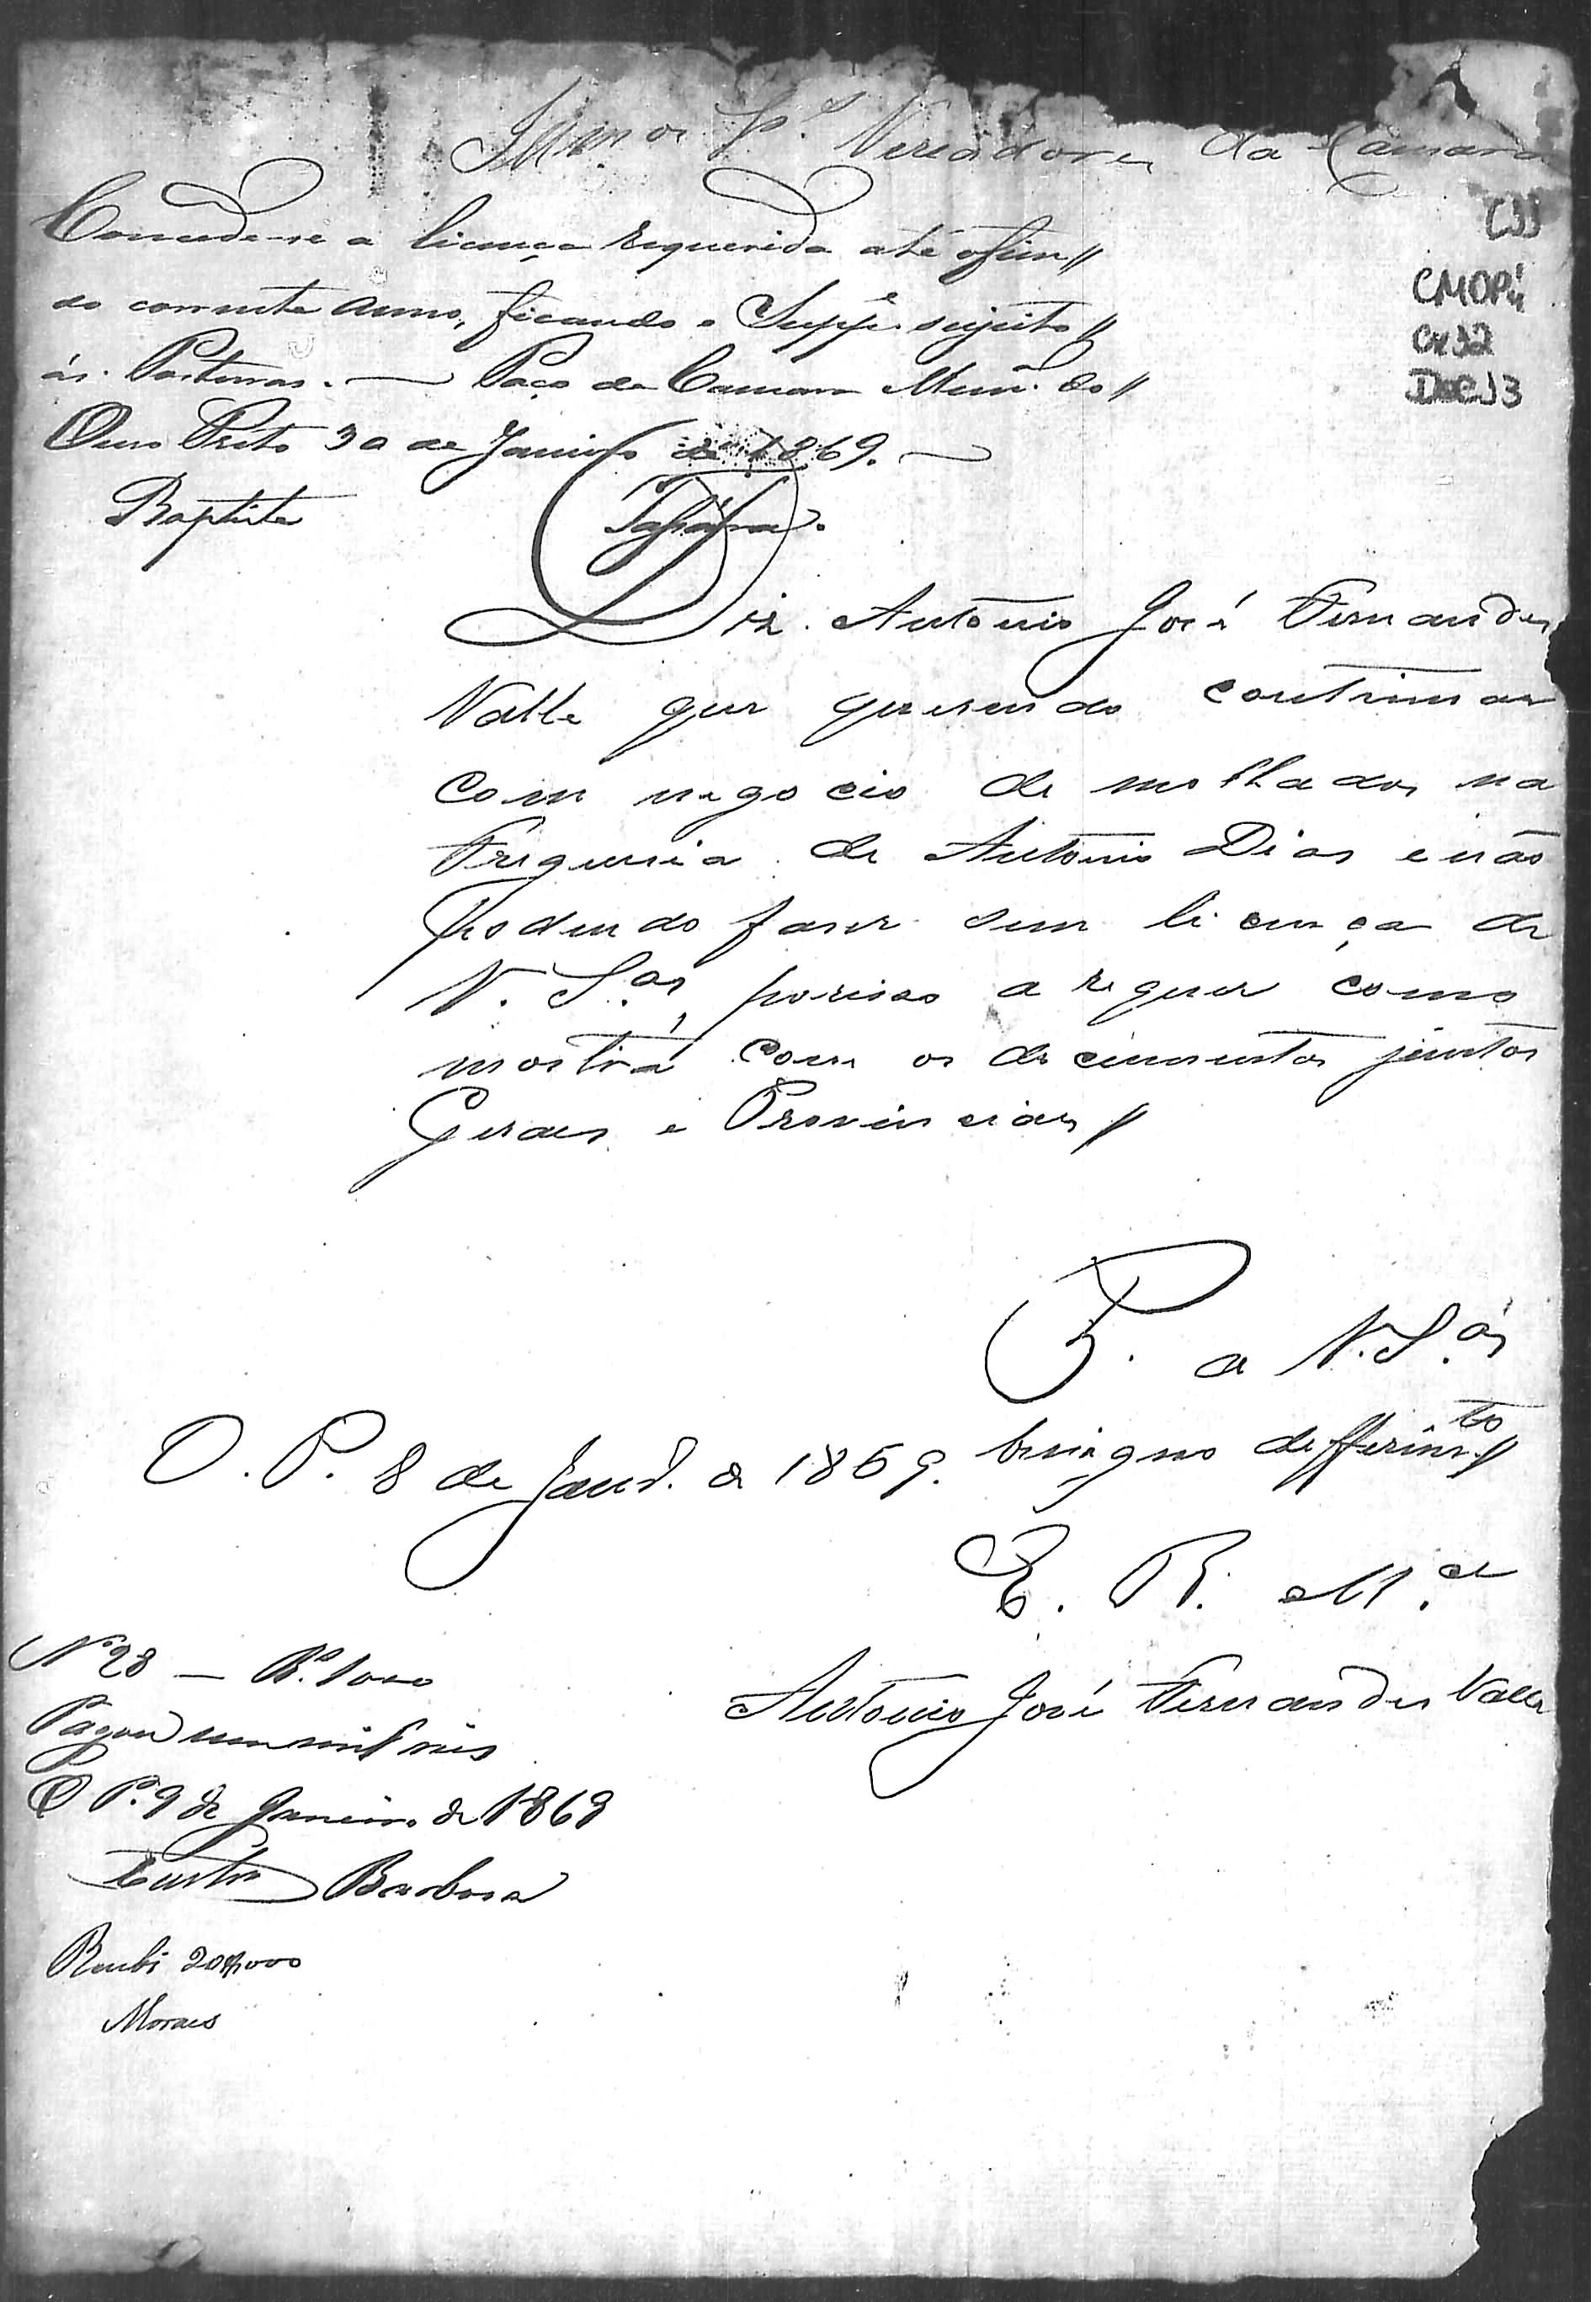 Illmos Srs Vereadores da Camara
Concede-se a licença requerida até o fim //
do corrente anno, ficando o Suppe. sujeito //
ás Posturas. — Paço da Camara Mun. do //
Ouro Preto 30 de Janeiro de 1869. —
Baptista
CJJ
CMOP
Cx 32
Doc 13
Diz Antonio José Fernandes
Valle que querendo continuar
com negocio de molhados na
Freguesia de Antonio Dias e não
podendo faser sem licença de
V. S.as, porisso a requer como
mostra com os documentos juntos
Geraes e Provinciaes //
P. a V. S.as
benigno defferim.to //
O. P. 8 de Janr.o de 1869.
E. R. M.ce
Antonio José Fernandes Valle
N.o 28 — R.s 1000
Pagou um mil reis
O P. 9 de Janeiro de 1869
Barbosa
Recebi 20$000
Moraes